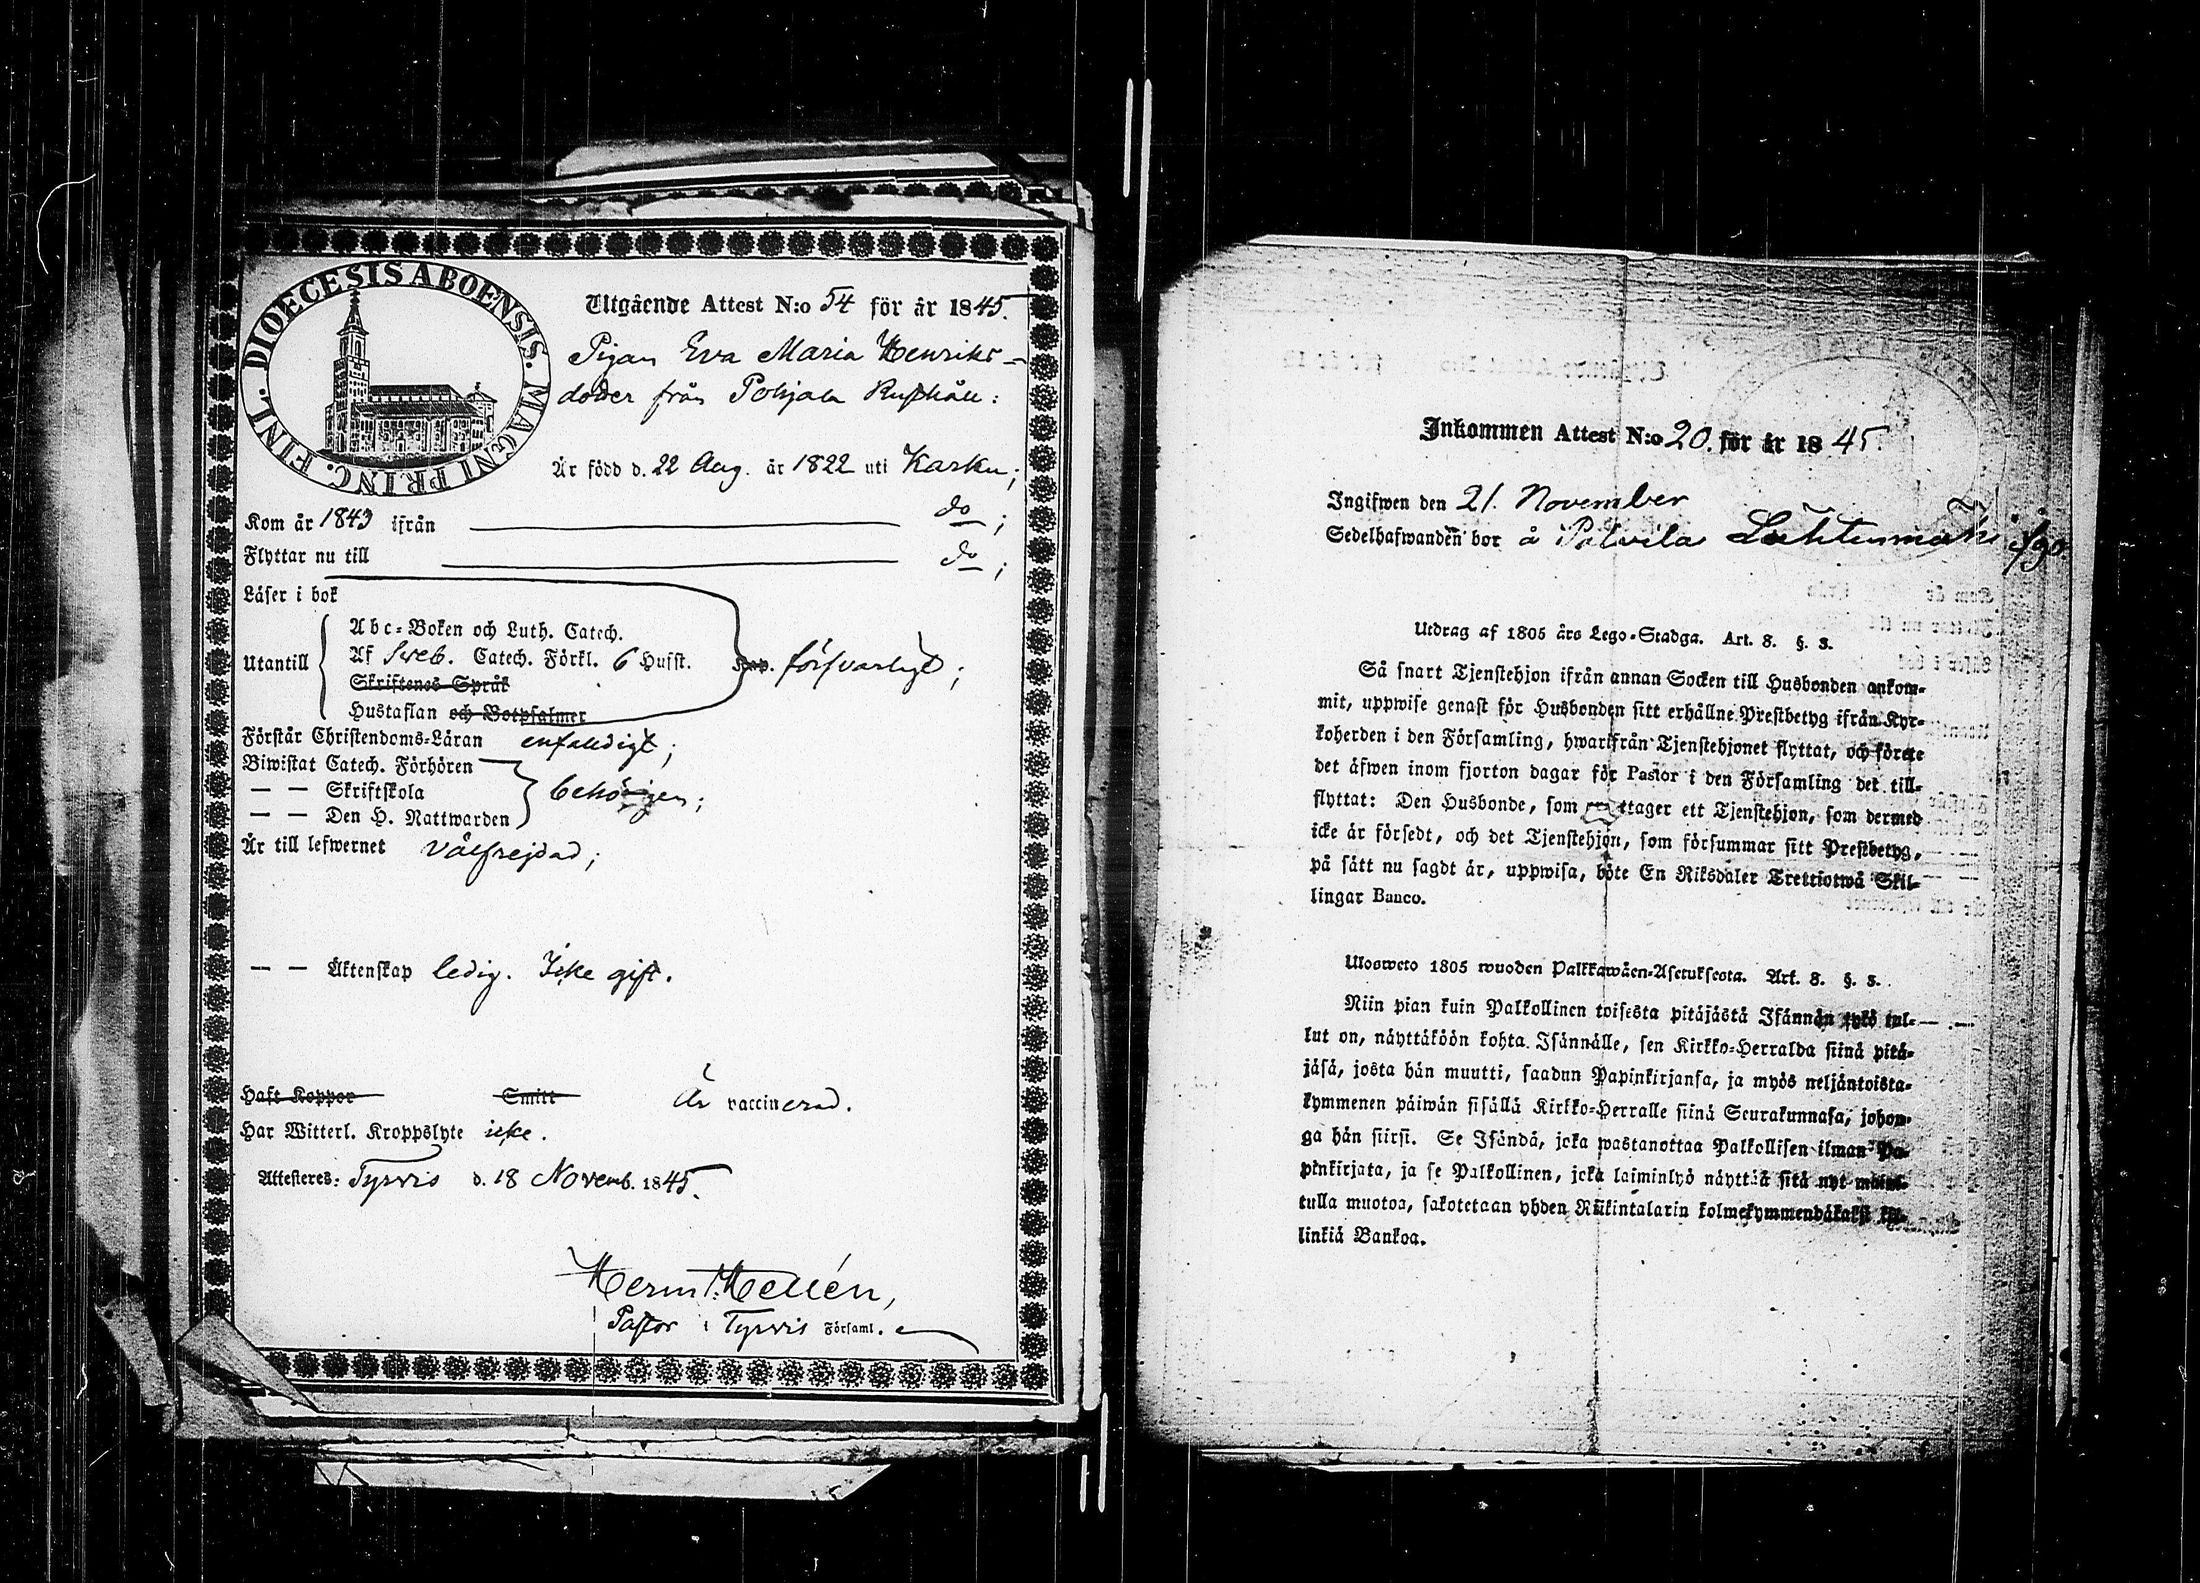 DIOECESIS ABOENSIS. MAGNI PRINC. FINL.
Utgående Attest N:o 54 för år 1845.
Pigan Eva Maria Henriks-
doder från Pohjala Rusthåll:
Är född d. 22 Aug. år 1822 uti Karku;
Kom år 1843 ifrån do;
Flyttar nu till do;
Läser i bok
Abc-Boken och Luth. Catech.
Utantill Af Sveb. Catech. Förkl. 6 Husst. Kap. försvarligt;
Skriftenes Språk
Hustaflan och Botpsalmer
Förstår Christendoms-Läran enfaldigt;
Biwistat Catech. Förhören
— — Skriftskola behörigen;
— — Den H. Nattwarden
Är till lefwernet välfrejdad;
— — Äktenskap ledig. Icke gift.
Haft Koppor Smitt Är vaccinerad.
Har Witterl. Kroppslyte icke.
Attesteres: Tyrvis d. 18 Novemb. 1845.
Herm. Hellén,
Pastor i Tyrvis Församl.
Inkommen Attest N:o 20 för år 1845.
Ingifwen den 21. November
Sedelhafwanden bor å Palvila
Utdrag af 1805 års Lego-Stadga. Art. 8. §. 3.
Så snart Tjenstehjon ifrån annan Socken till Husbonden ankom-
mit, uppwise genast för Husbonden sitt erhållne Prestbetyg ifrån Kyr-
koherden i den Församling, hwarifrån Tjenstehjonet flyttat, och förete
det äfwen inom fjorton dagar för Pastor i den Församling det till-
flyttat: Den Husbonde, som ettager ett Tjenstehjon, som dermed
icke är försedt, och det Tjenstehjon, som försummar sitt Prestbetyg,
på sätt nu sagdt är, uppwisa, böte En Riksdaler Trettiotwå Skil-
lingar Banco.
Ulosweto 1805 wuoden Palkkawäen-Asetuksesta. Art. 8. §. 3.
Niin pian kuin Palkollinen toisesta pitäjästä Isännän tykö tul-
lut on, näyttäköön kohta Isännälle, sen Kirkko-Herralda siinä pitä-
jäsä, josta hän muutti, saadun Papinkirjansa, ja myös neljäntoista-
kymmenen päiwän sisällä Kirkko-Herralle siinä Seurakunnasa, johon-
ga hän siirsi. Se Isändä, joka wastanottaa Palkollisen ilman Pa-
pinkirjata, ja se Palkollinen, joka laiminlyö näyttää sitä nyt
tulla muotoa, sakotetaan yhden Riikintalarin kolmekymmendäkaksi kil-
linkiä Bankoa.